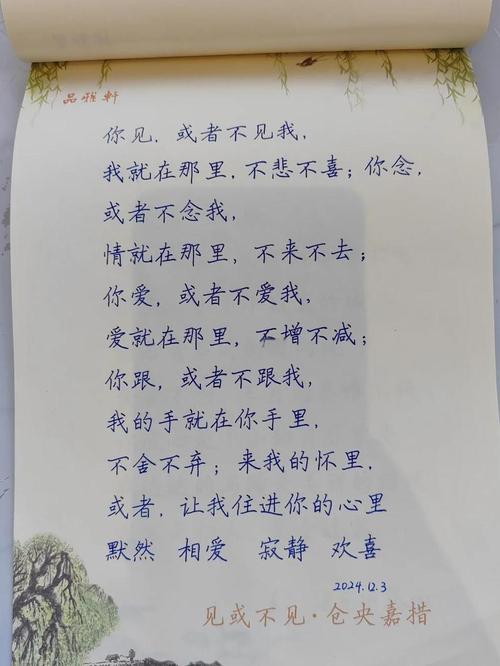 品雅軒
你见，或者不见我，
我就在那里，不悲不喜；你念，
或者不念我，
情就在那里，不来不去；
你爱，或者不爱我，
爱就在那里，不增不减；
你跟，或者不跟我，
我的手就在你手里，
不舍不弃；来我的怀里，
或者，让我住进你的心里
默然 相爱 寂静 欢喜
2024.12.3
见或不见·仓央嘉措